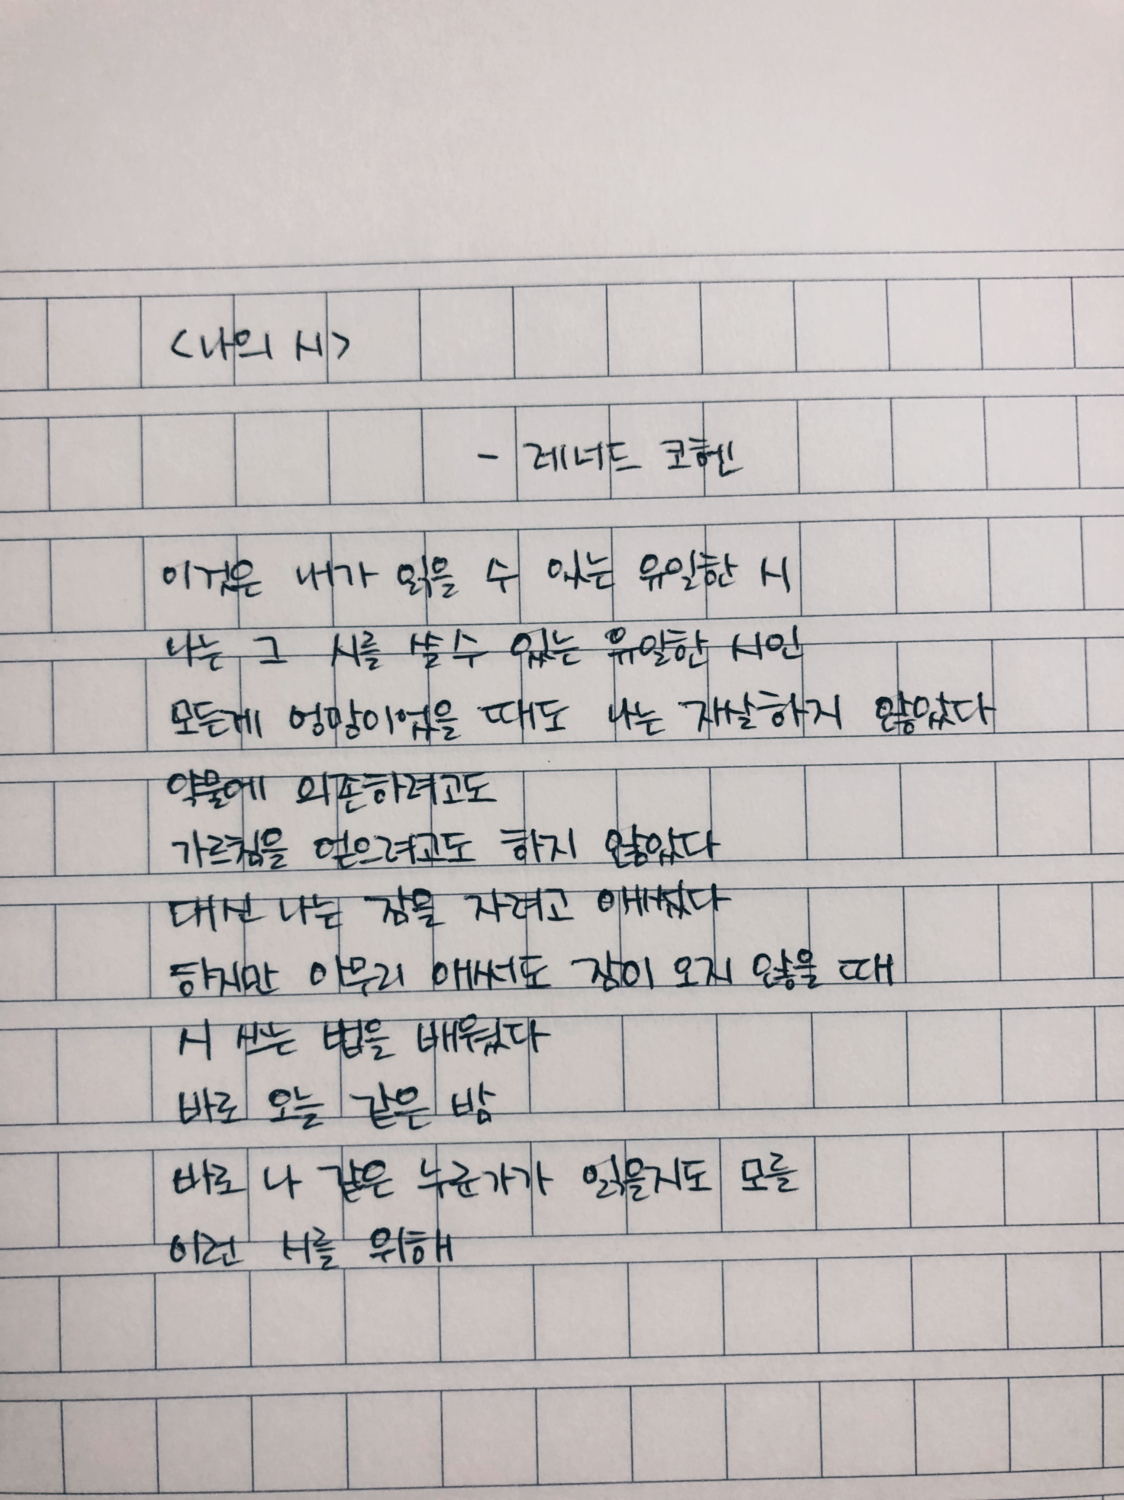 <나의 시>
- 레너드 코헨
이것은 내가 읽을 수 있는 유일한 시
나는 그 시를 쓸 수 있는 유일한 시인
모든게 엉망이었을 때도 나는 자살하지 않았다
약물에 의존하려고도
가르침을 얻으려고도 하지 않았다
대신 나는 잠을 자려고 애썼다
하지만 아무리 애써도 잠이 오지 않을 때
시 쓰는 법을 배웠다
바로 오늘 같은 밤
바로 나 같은 누군가가 읽을지도 모를
이런 시를 위해